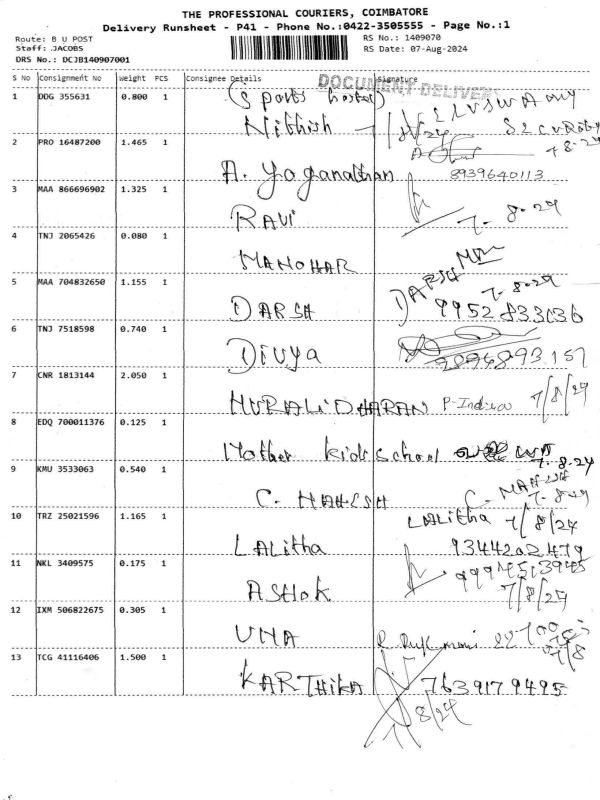 THE PROFESSIONAL COURIERS, COIMBATORE
Delivery Runsheet - P41 - Phone No.:0422-3505555 - Page No.:1
Route: B U POST RS No.: 1409070
Staff: JACOBS RS Date: 07-Aug-2024
DRS No.: DCJB140907001
S No Consignment No Weight PCS Consignee Details Signature
DOCUMENT DELIVER
1 DDG 355631 0.800 1 (Sports hostel)
Nithish
2 PRO 16487200 1.465 1 7-8-24
A. Yoganathan 8939640113
3 MAA 866696902 1.325 1
RAVI 7-8-24
4 TNJ 2065426 0.080 1
MANOHAR
5 MAA 704832650 1.155 1 DARSH 7-8-24
DARSH 9952833036
6 TNJ 7518598 0.740 1
Divya
7 CNR 1813144 2.050 1 7/8/24
MURALiDHARAN
8 EDQ 700011376 0.125 1
Mother kids school 7-8-24
9 KMU 3533063 0.540 1
C. MAHESH C. MAHESH 7-8-24
10 TRZ 25021596 1.165 1 LALitha 7/8/24
LALitha 9344202479
11 NKL 3409575 0.175 1
ASHOK 7/8/24
12 IXM 506822675 0.305 1
UMA
13 TCG 41116406 1.500 1
KARTHIKA 7639179495
8/24